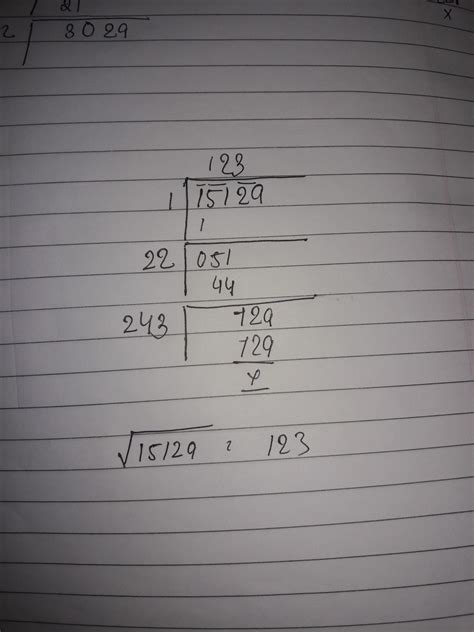 21
2 8029
x
123
1 15129
1
22 051
44
243 729
729
x
√15129 = 123